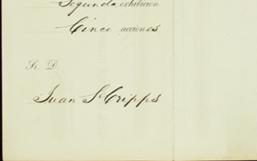 Segunda exhibicion
Cinco acciones
S. D.
Juan S Cripps